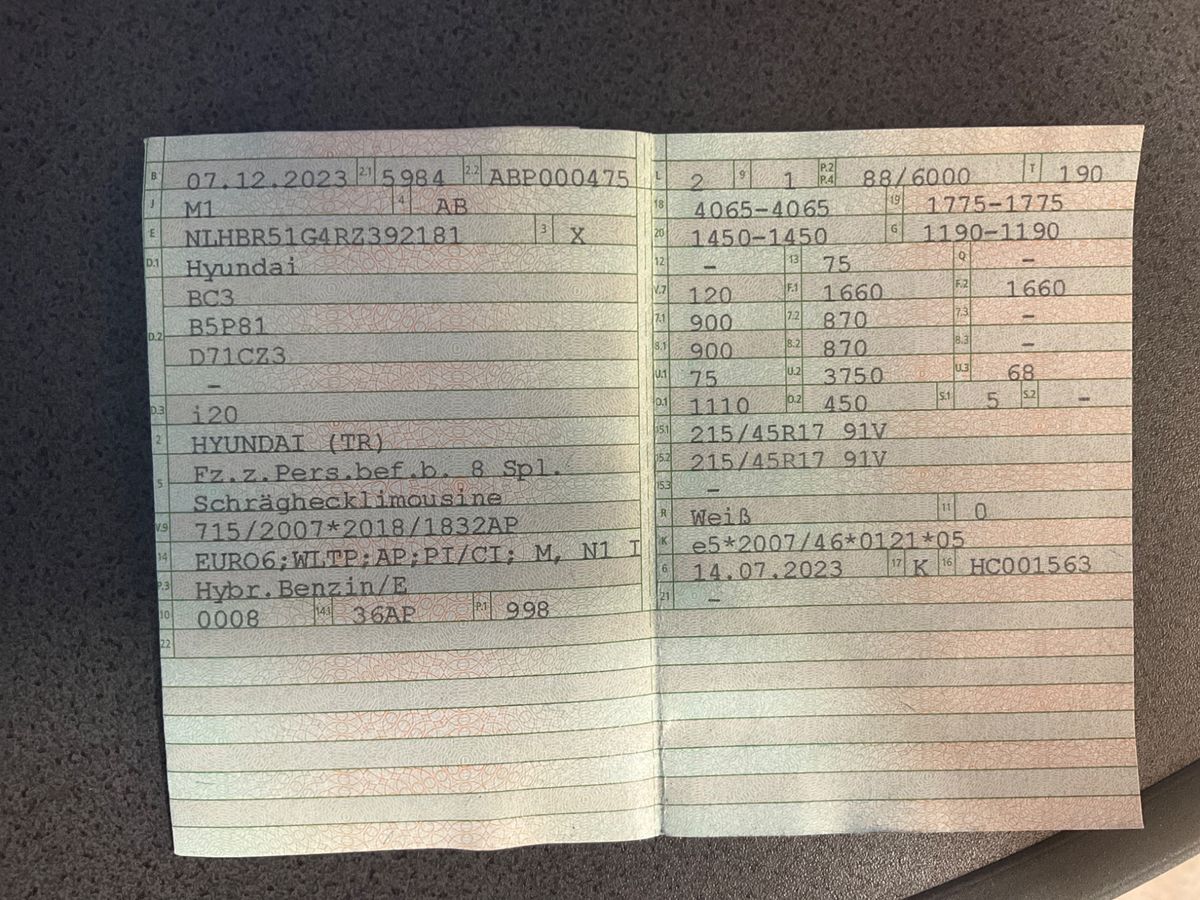 B 07.12.2023 2.1 5984 2.2 ABP000475
J M1 4 AB
E NLHBR51G4RZ392181 3 X
D.1 Hyundai
BC3
B5P81
D.2
D71CZ3
–
D.3 i20
2 HYUNDAI (TR)
Fz.z.Pers.bef.b. 8 Spl.
5
Schräghecklimousine
V.9 715/2007*2018/1832AP
14 EURO6;WLTP;AP;PI/CI; M, N1 I
P.3 Hybr.Benzin/E
10 0008 14.1 36AP P.1 998
22
L 2 9 1 P.2 P.4 88/6000 T 190
18 4065-4065 19 1775-1775
20 1450-1450 G 1190-1190
12 – 13 75 Q –
V.7 120 F.1 1660 F.2 1660
7.1 900 7.2 870 7.3 –
8.1 900 8.2 870 8.3 –
U.1 75 U.2 3750 U.3 68
O.1 1110 O.2 450 S.1 5 S.2 –
15.1 215/45R17 91V
15.2 215/45R17 91V
15.3 –
R Weiß 11 0
K e5*2007/46*0121*05
6 14.07.2023 17 K 16 HC001563
21 –